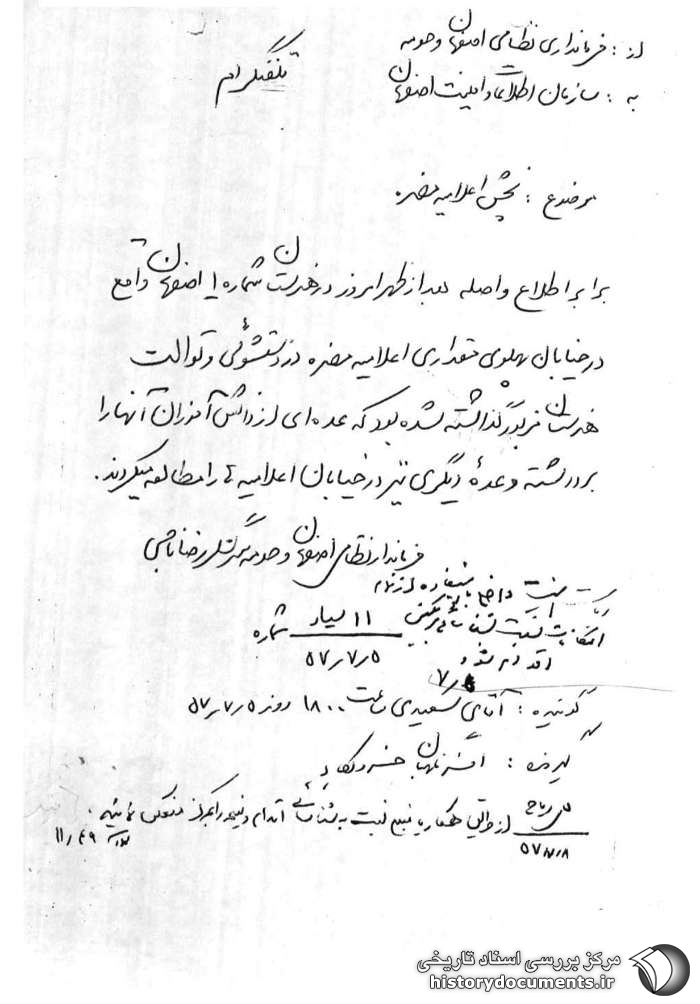 از : فرمانداری نظامی اصفهان و حومه
به : سازمان اطلاعات و امنیت اصفهان
تلفنگرام
موضوع : پخش اعلامیه مضره
برابر اطلاع واصله بعد از ظهر امروز در هنرستان شماره ۱ اصفهان واقع
در خیابان پهلوی مقداری اعلامیه مضره در دستشوئی و توالت
هنرستان مزبور گذاشته شده بود که عده‌ای از دانش آموزان آنها را
برداشته و عدهٔ دیگری نیز در خیابان اعلامیه ها را مطالعه میکردند.
فرماندار نظامی اصفهان و حومه سرلشگر رضا ناجی
امکانات نسبت
اقدام شود
شماره ۱۱ سیار
۵۷٫۷٫۵
۷٫۸
گوینده : آقای سعیدی ساعت ۱۸۰۰ روز ۵۷٫۷٫۵
گیرنده : افسر نگهبان
از طریق همکار یا منبع نسبت به شناسائی اقدام و نتیجه را بمرکز منعکس نمائید .
۵۷٫۷٫۸
مرکز بررسی اسناد تاریخی
historydocuments.ir